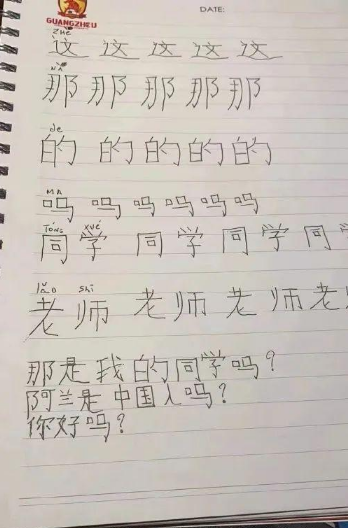 DATE:
GUANGZHEU
ZHè
这 这 这 这 这
NÀ
那 那 那 那 那
de
的 的 的 的 的
MA
吗 吗 吗 吗 吗 吗
tóng xué
同 学 同 学 同 学 同
lǎo shī
老 师 老 师 老 师 老
那是我的同学吗?
阿兰是中国人吗?
你好吗?